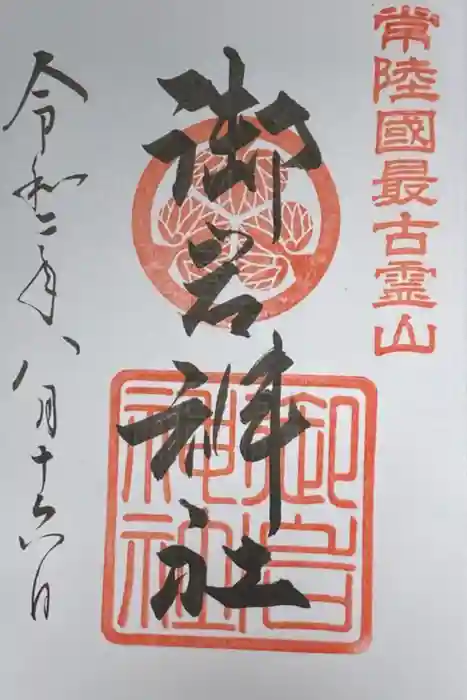 常陸國最古霊山
御岩神社
御岩神社
令和二年八月十六日